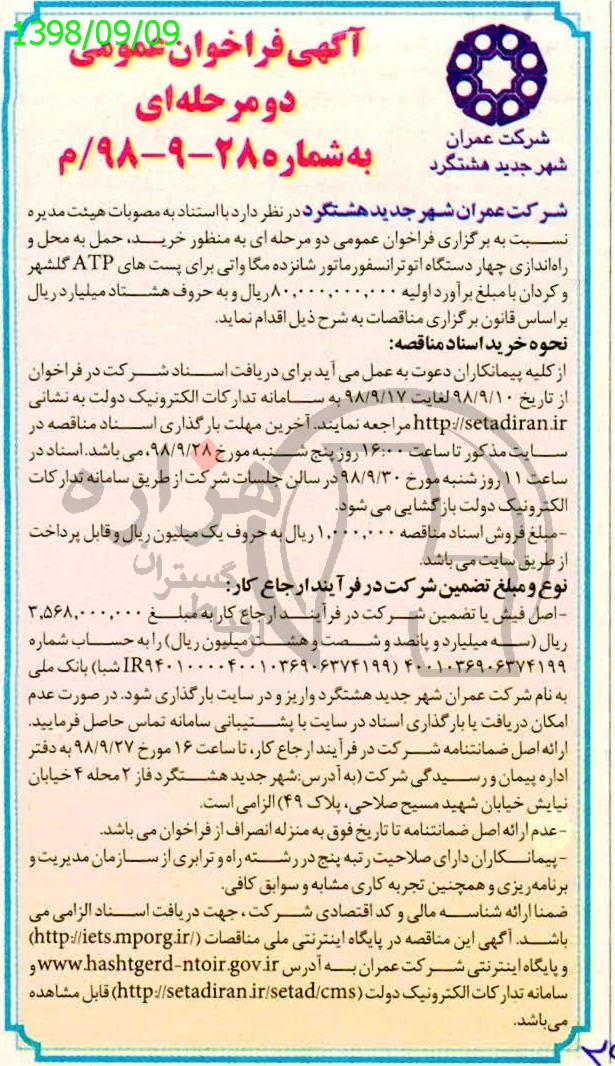 1398/09/09
آگهی فراخوان عمومی
دو مرحله‌ای
به شماره ۲۸-۹-۹۸/م
شرکت عمران
شهر جدید هشتگرد
شرکت عمران شهر جدید هشتگرد در نظر دارد با استناد به مصوبات هیئت مدیره
نسبت به برگزاری فراخوان عمومی دو مرحله ای به منظور خرید، حمل به محل و
راه‌اندازی چهار دستگاه اتوترانسفورماتور شانزده مگا واتی برای پست های ATP گلشهر
و کردان با مبلغ برآورد اولیه ۸۰,۰۰۰,۰۰۰,۰۰۰ ریال و به حروف هشتاد میلیارد ریال
براساس قانون برگزاری مناقصات به شرح ذیل اقدام نماید.
نحوه خرید اسناد مناقصه:
از کلیه پیمانکاران دعوت به عمل می آید برای دریافت اسناد شرکت در فراخوان
از تاریخ ۹۸/۹/۱۰ لغایت ۹۸/۹/۱۷ به سامانه تدارکات الکترونیک دولت به نشانی
http://setadiran.ir مراجعه نمایند. آخرین مهلت بارگذاری اسناد مناقصه در
سایت مذکور تا ساعت ۱۶:۰۰ روز پنج شنبه مورخ ۹۸/۹/۲۸، می باشد. اسناد در
ساعت ۱۱ روز شنبه مورخ ۹۸/۹/۳۰ در سالن جلسات شرکت از طریق سامانه تدارکات
الکترونیک دولت بازگشایی می شود.
-مبلغ فروش اسناد مناقصه ۱,۰۰۰,۰۰۰ ریال به حروف یک میلیون ریال و قابل پرداخت
از طریق سایت می باشد.
نوع و مبلغ تضمین شرکت در فرآیند ارجاع کار:
-اصل فیش یا تضمین شرکت در فرآیند ارجاع کار به مبلغ ۳,۵۶۸,۰۰۰,۰۰۰
ریال (سه میلیارد و پانصد و شصت و هشت میلیون ریال) را به حساب شماره
۴۰۰۱۰۳۶۹۰۶۳۷۴۱۹۹ (IR۹۴۰۱۰۰۰۰۴۰۰۱۰۳۶۹۰۶۳۷۴۱۹۹ شبا) بانک ملی
به نام شرکت عمران شهر جدید هشتگرد واریز و در سایت بارگذاری شود. در صورت عدم
امکان دریافت یا بارگذاری اسناد در سایت با پشتیبانی سامانه تماس حاصل فرمایید.
ارائه اصل ضمانتنامه شرکت در فرآیند ارجاع کار، تا ساعت ۱۶ مورخ ۹۸/۹/۲۷ به دفتر
اداره پیمان و رسیدگی شرکت (به آدرس:شهر جدید هشتگرد فاز ۲ محله ۴ خیابان
نیایش خیابان شهید مسیح صلاحی، پلاک ۴۹) الزامی است.
-عدم ارائه اصل ضمانتنامه تا تاریخ فوق به منزله انصراف از فراخوان می باشد.
-پیمانکاران دارای صلاحیت رتبه پنج در رشته راه و ترابری از سازمان مدیریت و
برنامه‌ریزی و همچنین تجربه کاری مشابه و سوابق کافی.
ضمنا ارائه شناسه مالی و کد اقتصادی شرکت، جهت دریافت اسناد الزامی می
باشد. آگهی این مناقصه در پایگاه اینترنتی ملی مناقصات (http://iets.mporg.ir/)
و پایگاه اینترنتی شرکت عمران به آدرس www.hashtgerd-ntoir.gov.ir و
سامانه تدارکات الکترونیک دولت (http://setadiran.ir/setad/cms) قابل مشاهده
می‌باشد.
هزاره
گستران